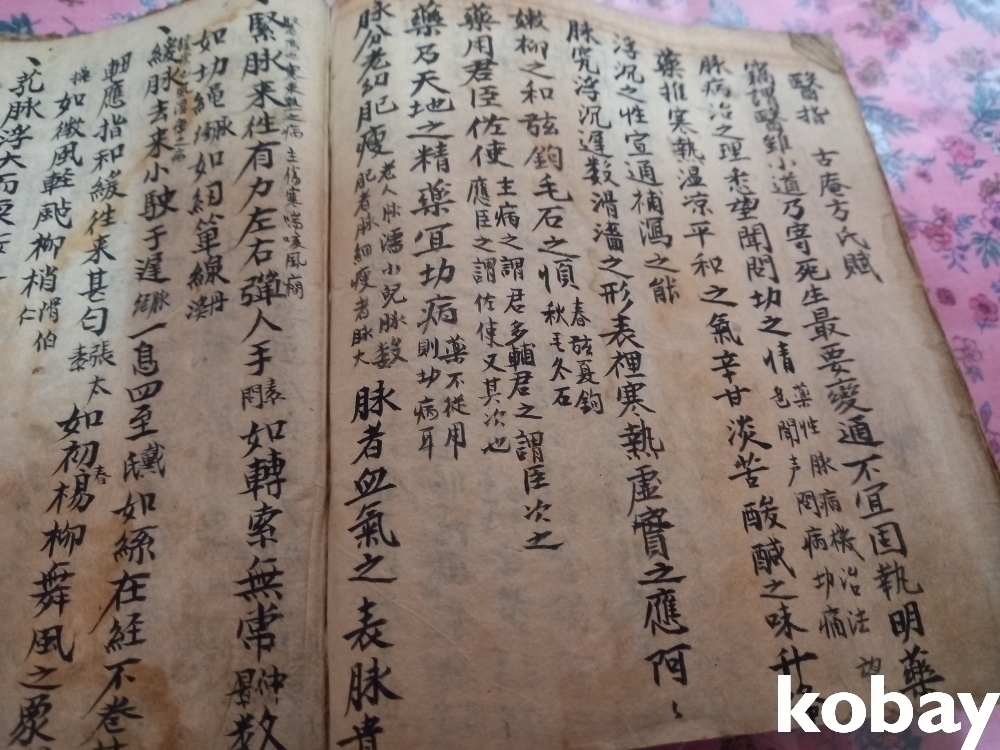 醫指　古庵方氏賦
竊謂醫雖小道乃寄死生最要變通不宜固執明藥
脉病治之理悉望聞問切之情 藥性脉病機治法望色聞声問病切痛
藥推寒熱温凉平和之氣辛甘淡苦酸醎之味升
浮沉之性宣通補瀉之能
脉究浮沉遲数滑濇之形表裡寒熱虚實之應阿
嫩柳之和弦鈎毛石之順 春弦夏鈎秋毛冬石
藥用君臣佐使 主病之謂君多輔君之謂臣次之應臣之謂佐使又其次也
藥乃天地之精藥宜切病 藥不從用則切病耳
脉分老幼肥瘦 老人脉濡小兒脉数肥者脉細瘦者脉大 脉者血氣之表脉貴
緊脉来徃有力左右彈人手 素問 如轉索無常 仲景 数
如切繩 脉 如紉箄線 丹溪
緩脉去来小駛于遲 脉 一息四至 戴氏 如絲在経不卷
應指和緩徃来甚匀 張太素 如初春楊柳舞風之象
如微風軽颭柳梢 滑伯仁
芤脉浮大而耎
主傷寒喘咳風癎
kobay